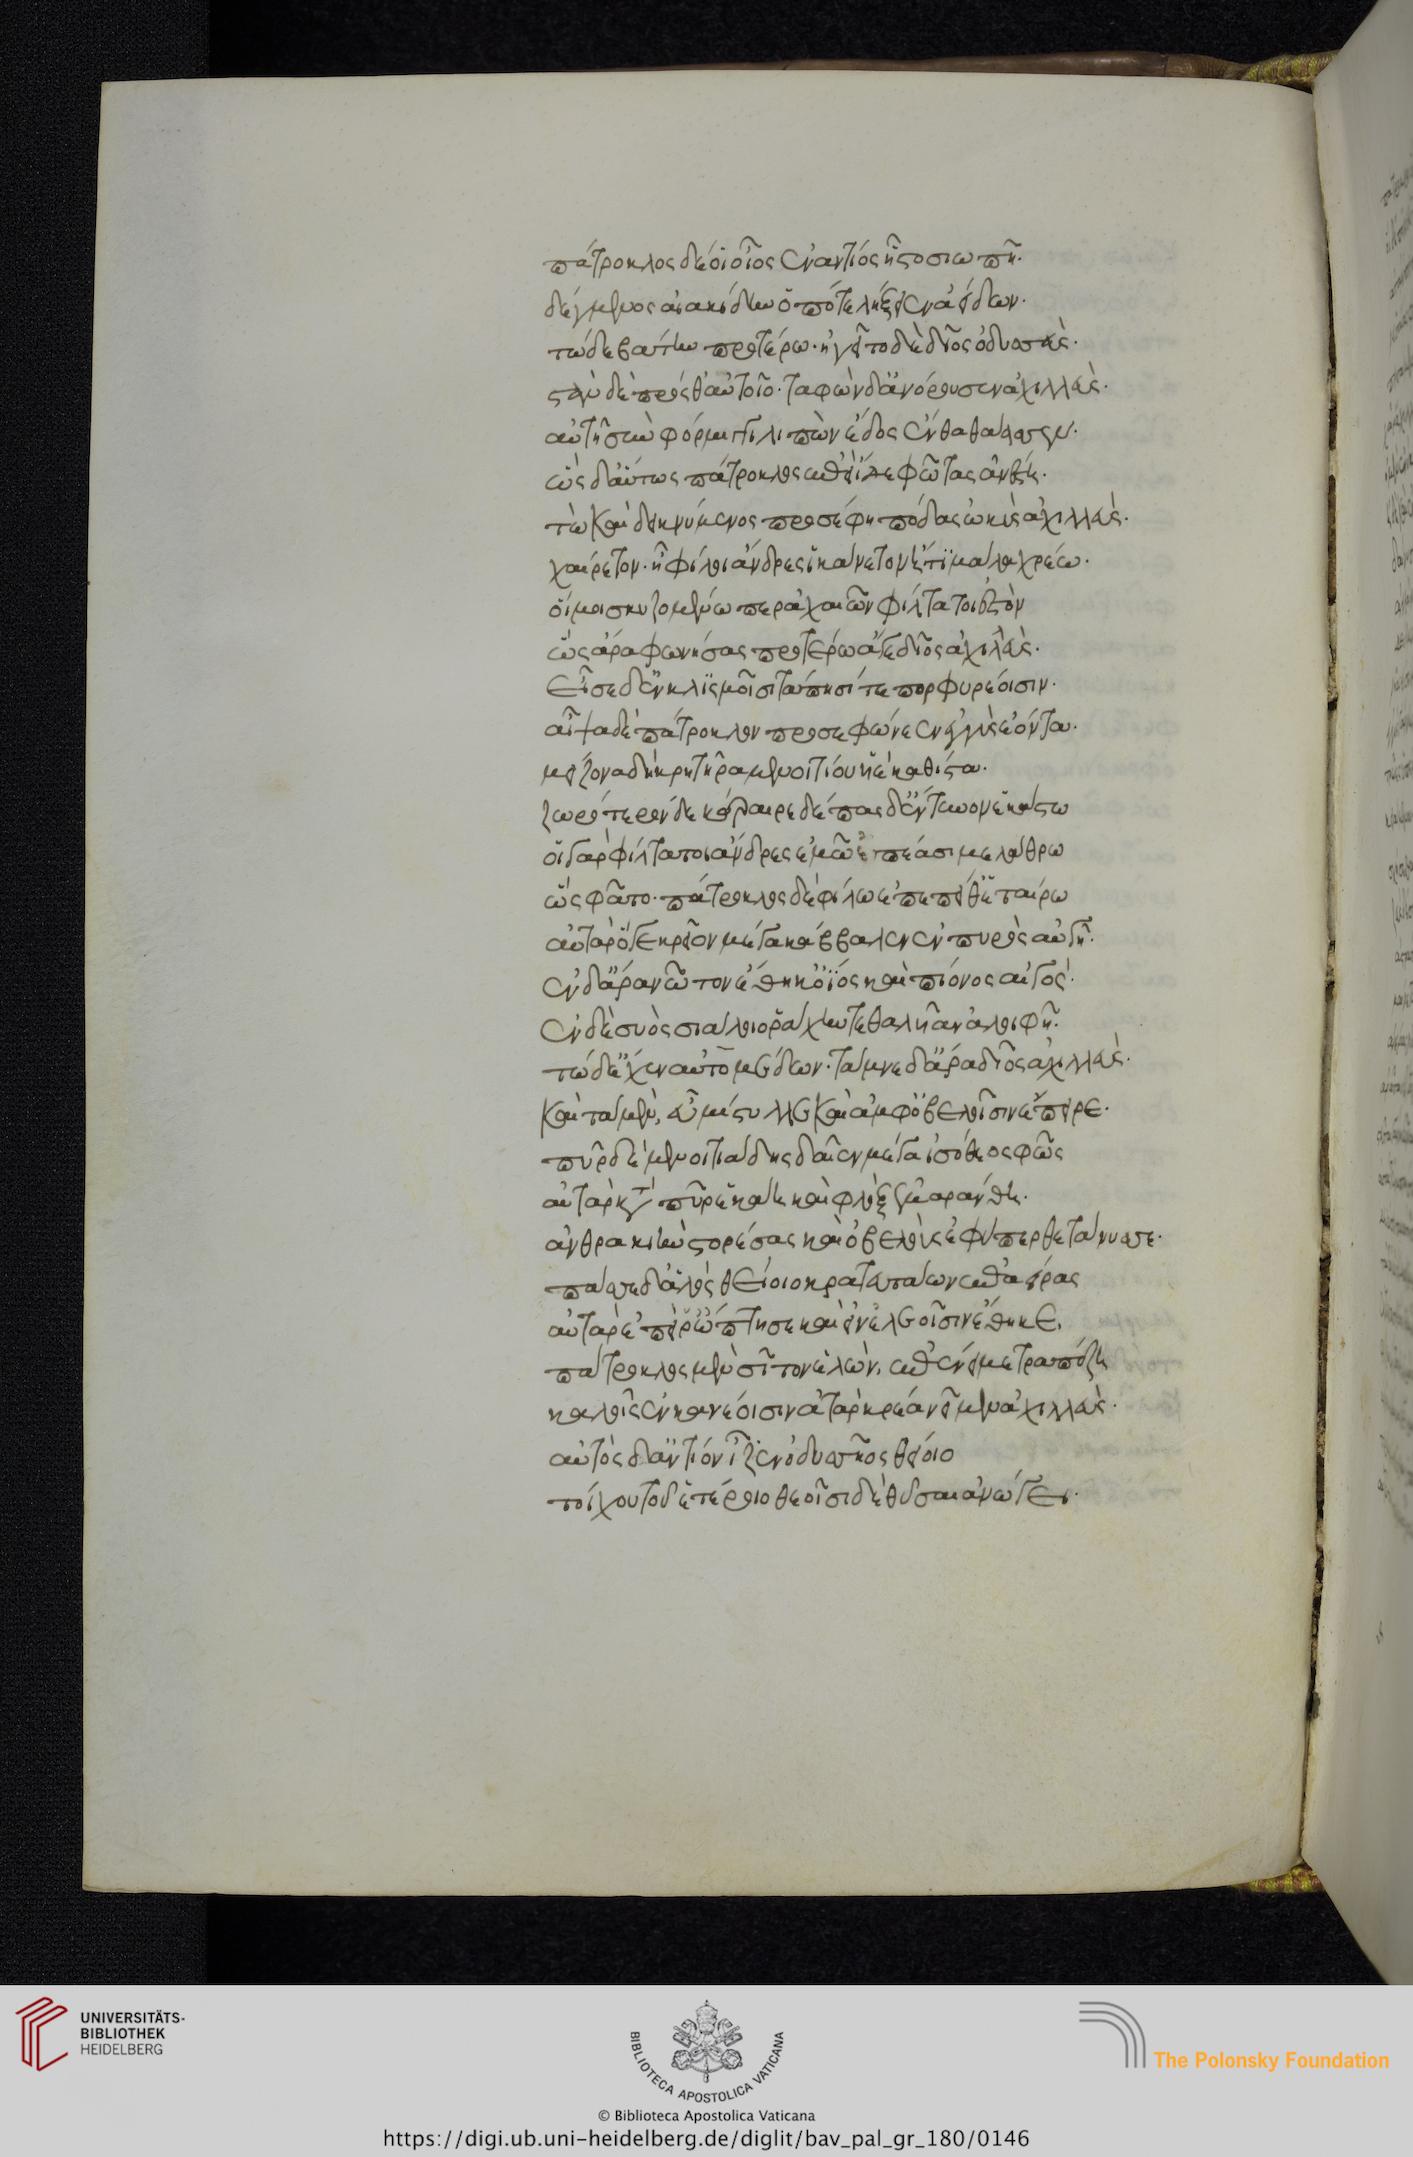 πάτροκλος δέ οἱ οἶος ἐναντίος ἧστο σιωπῆ·
δέγμενος αἰακίδην ὁπότε λήξειεν ἀείδων·
τὼ δὲ βάτην προτέρω· ἡγεῖτο δὲ δῖος ὀδυσσεὺς·
στὰν δὲ πρόσθ' αὐτοῖο· ταφὼν δ' ἀνόρουσεν ἀχιλλεὺς·
αὐτῆ σὺν φόρμιγγι λιπὼν ἕδος ἔνθα θάασσεν·
ὣς δ' αὔτως πάτροκλος ἐπεὶ ἴδε φῶτας ἀνέστη·
τὼ καὶ δεικνύμενος προσέφη πόδας ὠκὺς ἀχιλλεὺς·
χαίρετον· ἦ φίλοι ἄνδρες ἱκάνετον ἦ τι μάλα χρεώ·
οἵ μοι σκυζομένω περ ἀχαιῶν φίλτατοι ἐστὸν
ὣς ἄρα φωνήσας προτέρω ἄγε δῖος ἀχιλλεὺς·
εἷσε δ' ἐν κλισμοῖσι τάπησί τε πορφυρέοισιν·
αἶψα δὲ πάτροκλον προσεφώνεεν ἐγγὺς ἐόντα·
μείζονα δὴ κρητῆρα μενοιτίου υἱὲ καθίστα·
ζωρότερον δὲ κέραιρε δέπας δ' ἔντυνον ἑκάστω
οἳ γὰρ φίλτατοι ἄνδρες ἐμῶ ὑπέασι μελάθρω
ὣς φάτο· πάτροκλος δὲ φίλω ἐπεπείθεθ' ἑταίρω
αὐτὰρ ὅγε κρεῖον μέγα κάββαλεν ἐν πυρὸς αὐγῆ·
ἐν δ' ἄρα νῶτον ἔθηκ' ὄϊος καὶ πίονος αἰγός·
ἐν δὲ συὸς σιάλοιο ῥάχιν τεθαλυῖαν ἀλοιφῆ·
τῶ δ' ἔχεν αὐτομέδων· τάμνε δ' ἄρα δῖος ἀχιλλεὺς·
καὶ τὰ μὲν εὖ μίστυλλε καὶ ἀμφ' ὀβελοῖσιν ἔπειρε·
πῦρ δὲ μενοιτιάδης δαῖεν μέγα ἰσόθεος φῶς
αὐτὰρ ἐπεὶ κατὰ πῦρ ἐκάη καὶ φλὸξ ἐμαράνθη·
ἀνθρακιὴν στορέσας καὶ ὀβελοὺς ἐφύπερθε τάνυσσε·
πάσσε δ' ἁλὸς θείοιο κρατευτάων ἐπαείρας
αὐτὰρ ἐπεί ῥ' ὤπτησε καὶ εἰν ἐλεοῖσιν ἔθηκε,
πάτροκλος μὲν σῖτον ἑλὼν, ἐπένειμε τραπέζη
καλοῖς ἐν κανέοισιν ἀτὰρ κρέα νεῖμεν ἀχιλλεὺς·
αὐτὸς δ' ἀντίον ἷζεν ὀδυσσῆος θείοιο
τοίχου τοῦ ἑτέροιο θεοῖσι δὲ θῦσαι ἀνώγει·
UNIVERSITÄTS-
BIBLIOTHEK
HEIDELBERG
BIBLIOTECA APOSTOLICA VATICANA
The Polonsky Foundation
© Biblioteca Apostolica Vaticana
https://digi.ub.uni-heidelberg.de/diglit/bav_pal_gr_180/0146